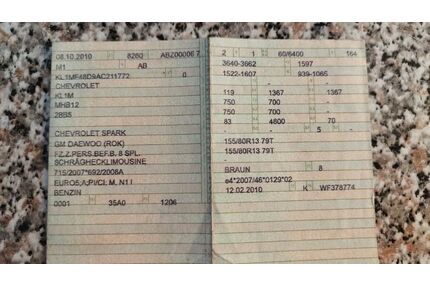 08.10.2010 8260 ABZ00006 7
M1 AB
KL1MF48D9AC211772 0
CHEVROLET
KL1M
MHB12
2BB5
CHEVROLET SPARK
GM DAEWOO (ROK)
FZ.Z.PERS.BEF.B. 8 SPL.
SCHRÄGHECKLIMOUSINE
715/2007*692/2008A
EURO5;A;PI/CI; M, N1 I
BENZIN
0001 35A0 1206
2 1 60/6400 164
3640-3662 1597
1522-1607 939-1065
119 1367 1367
750 700 -
750 700 -
83 4800 70
- - 5 -
155/80R13 79T
155/80R13 79T
-
BRAUN 8
e4*2007/46*0129*02
12.02.2010 K WF378774